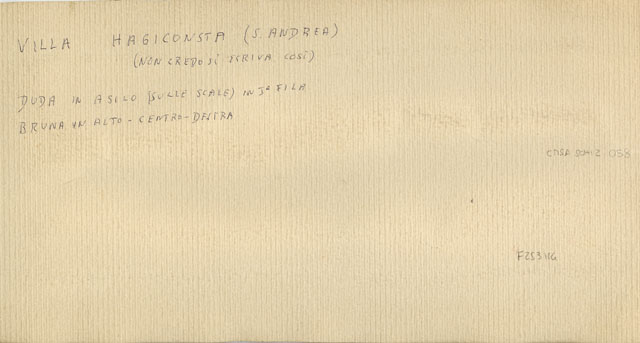 VILLA HAGICONSTA (S. ANDREA)
(NON CREDO SI SCRIVA COSÌ)
DUDA IN ASILO (SULLE SCALE) IN FILA
BRUNA IN ALTO - CENTRO-DESTRA
058